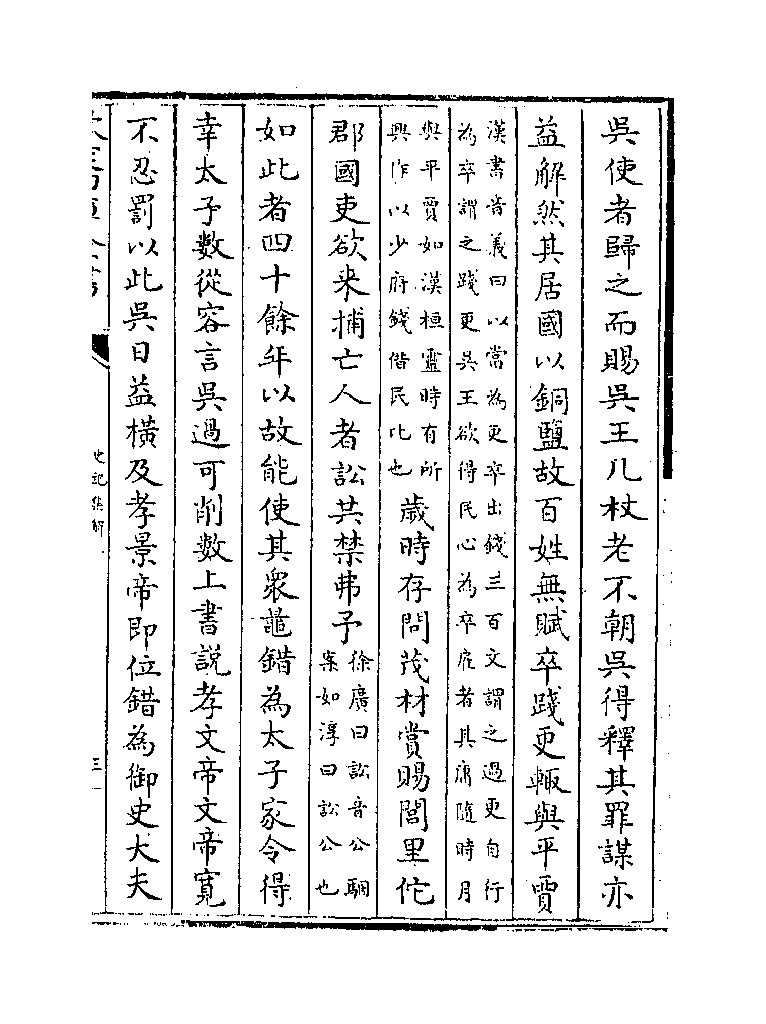 吳使者歸之而賜吳王几杖老不朝吳得釋其罪謀亦
益解然其居國以銅鹽故百姓無賦卒踐更輙與平賈
漢書音義曰以當為更卒出錢三百文謂之過更自行
為卒謂之踐更吳王欲得民心為卒雇者其庸隨時月
與平賈如漢桓靈時有所
興作以少府錢偕民比也
歲時存問茂材賞賜閭里佗
郡國吏欲來捕亡人者訟共禁弗予
徐廣曰訟音公駰
案如淳曰訟公也
如此者四十餘年以故能使其衆鼂錯為太子家令得
幸太子數從容言吳過可削數上書說孝文帝文帝寛
不忍罰以此吳日益橫及孝景帝即位錯為御史大夫
史記集解